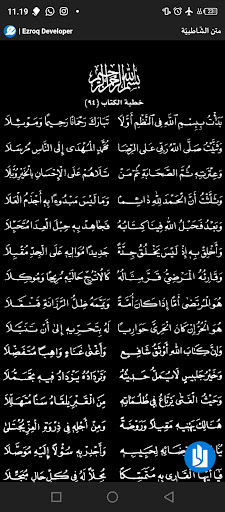 11.19
| Ezroq Developer
متن الشاطبية
بِسْمِ اللَّهِ الرَّحْمَنِ الرَّحِيمِ
خطبة الكتاب (٩٤)
بَدَأْتُ بِبِسْمِ اللَّهِ فِي النَّظْمِ أَوَّلَا تَبَارَكَ رَحْمَانًا رَحِيمًا وَمَوْئِلَا
وَثَنَّيْتُ صَلَّى اللَّهُ رَبِّي عَلَى الرِّضَا مُحَمَّدٍ الْمُهْدَى إِلَى النَّاسِ مُرْسَلَا
وَعِتْرَتِهِ ثُمَّ الصَّحَابَةِ ثُمَّ مَنْ تَلَاهُمْ عَلَى الْإِحْسَانِ بِالْخَيْرِ وُبَّلَا
وَثَلَّثْتُ أَنَّ الْحَمْدَ لِلَّهِ دَائِمًا وَمَا لَيْسَ مَبْدُوءًا بِهِ أَجْذَمُ الْعَلَا
وَبَعْدُ فَحَبْلُ اللَّهِ فِينَا كِتَابُهُ فَجَاهِدْ بِهِ حِبْلَ الْعِدَا مُتَحَبِّلَا
وَأَخْلِقْ بِهِ إِذْ لَيْسَ يَخْلُقُ جِدَّةً جَدِيدًا مُوَالِيهِ عَلَى الْجِدِّ مُقْبِلَا
وَقَارِئُهُ الْمَرْضِيُّ قَرَّ مِثَالُهُ كَالْأُتْرُجِّ حَالَيْهِ مُرِيحًا وَمُوكِلَا
هُوَ الْمُرْتَضَى أَمًّا إِذَا كَانَ أُمَّةً وَيَمَّمَهُ ظِلُّ الرَّزَانَةِ قَنْقَلَا
هُوَ الْحُرُّ إِنْ كَانَ الْحَرِيَّ حَوَارِيًا لَهُ بِتَحَرِّيهِ إِلَى أَنْ تَنَبَّلَا
وَإِنَّ كِتَابَ اللَّهِ أَوْثَقُ شَافِعٍ وَأَغْنَى غَنَاءٍ وَاهِبًا مُتَفَضِّلَا
وَخَيْرُ جَلِيسٍ لَا يُمَلُّ حَدِيثُهُ وَتَرْدَادُهُ يَزْدَادُ فِيهِ تَجَمُّلَا
وَحَيْثُ الْفَتَى يَرْتَاعُ فِي ظُلُمَاتِهِ مِنَ الْقَبْرِ يَلْقَاهُ سَنًا مُتَهَلِّلَا
هُنَالِكَ يَهْنِيهِ مَقِيلًا وَرَوْضَةً وَمِنْ أَجْلِهِ فِي ذِرْوَةِ الْعِزِّ يُجْتَلَى
إِرْضَائِهِ لِحَبِيبِهِ وَأَجْدِرْ بِهِ سُؤْلًا إِلَيْهِ مُوَصَّلَا
فَيَا أَيُّهَا الْقَارِي بِهِ مُتَمَسِّكًا مُجِلًّا لَهُ فِي كُلِّ حَالٍ مُبَجِّلَا